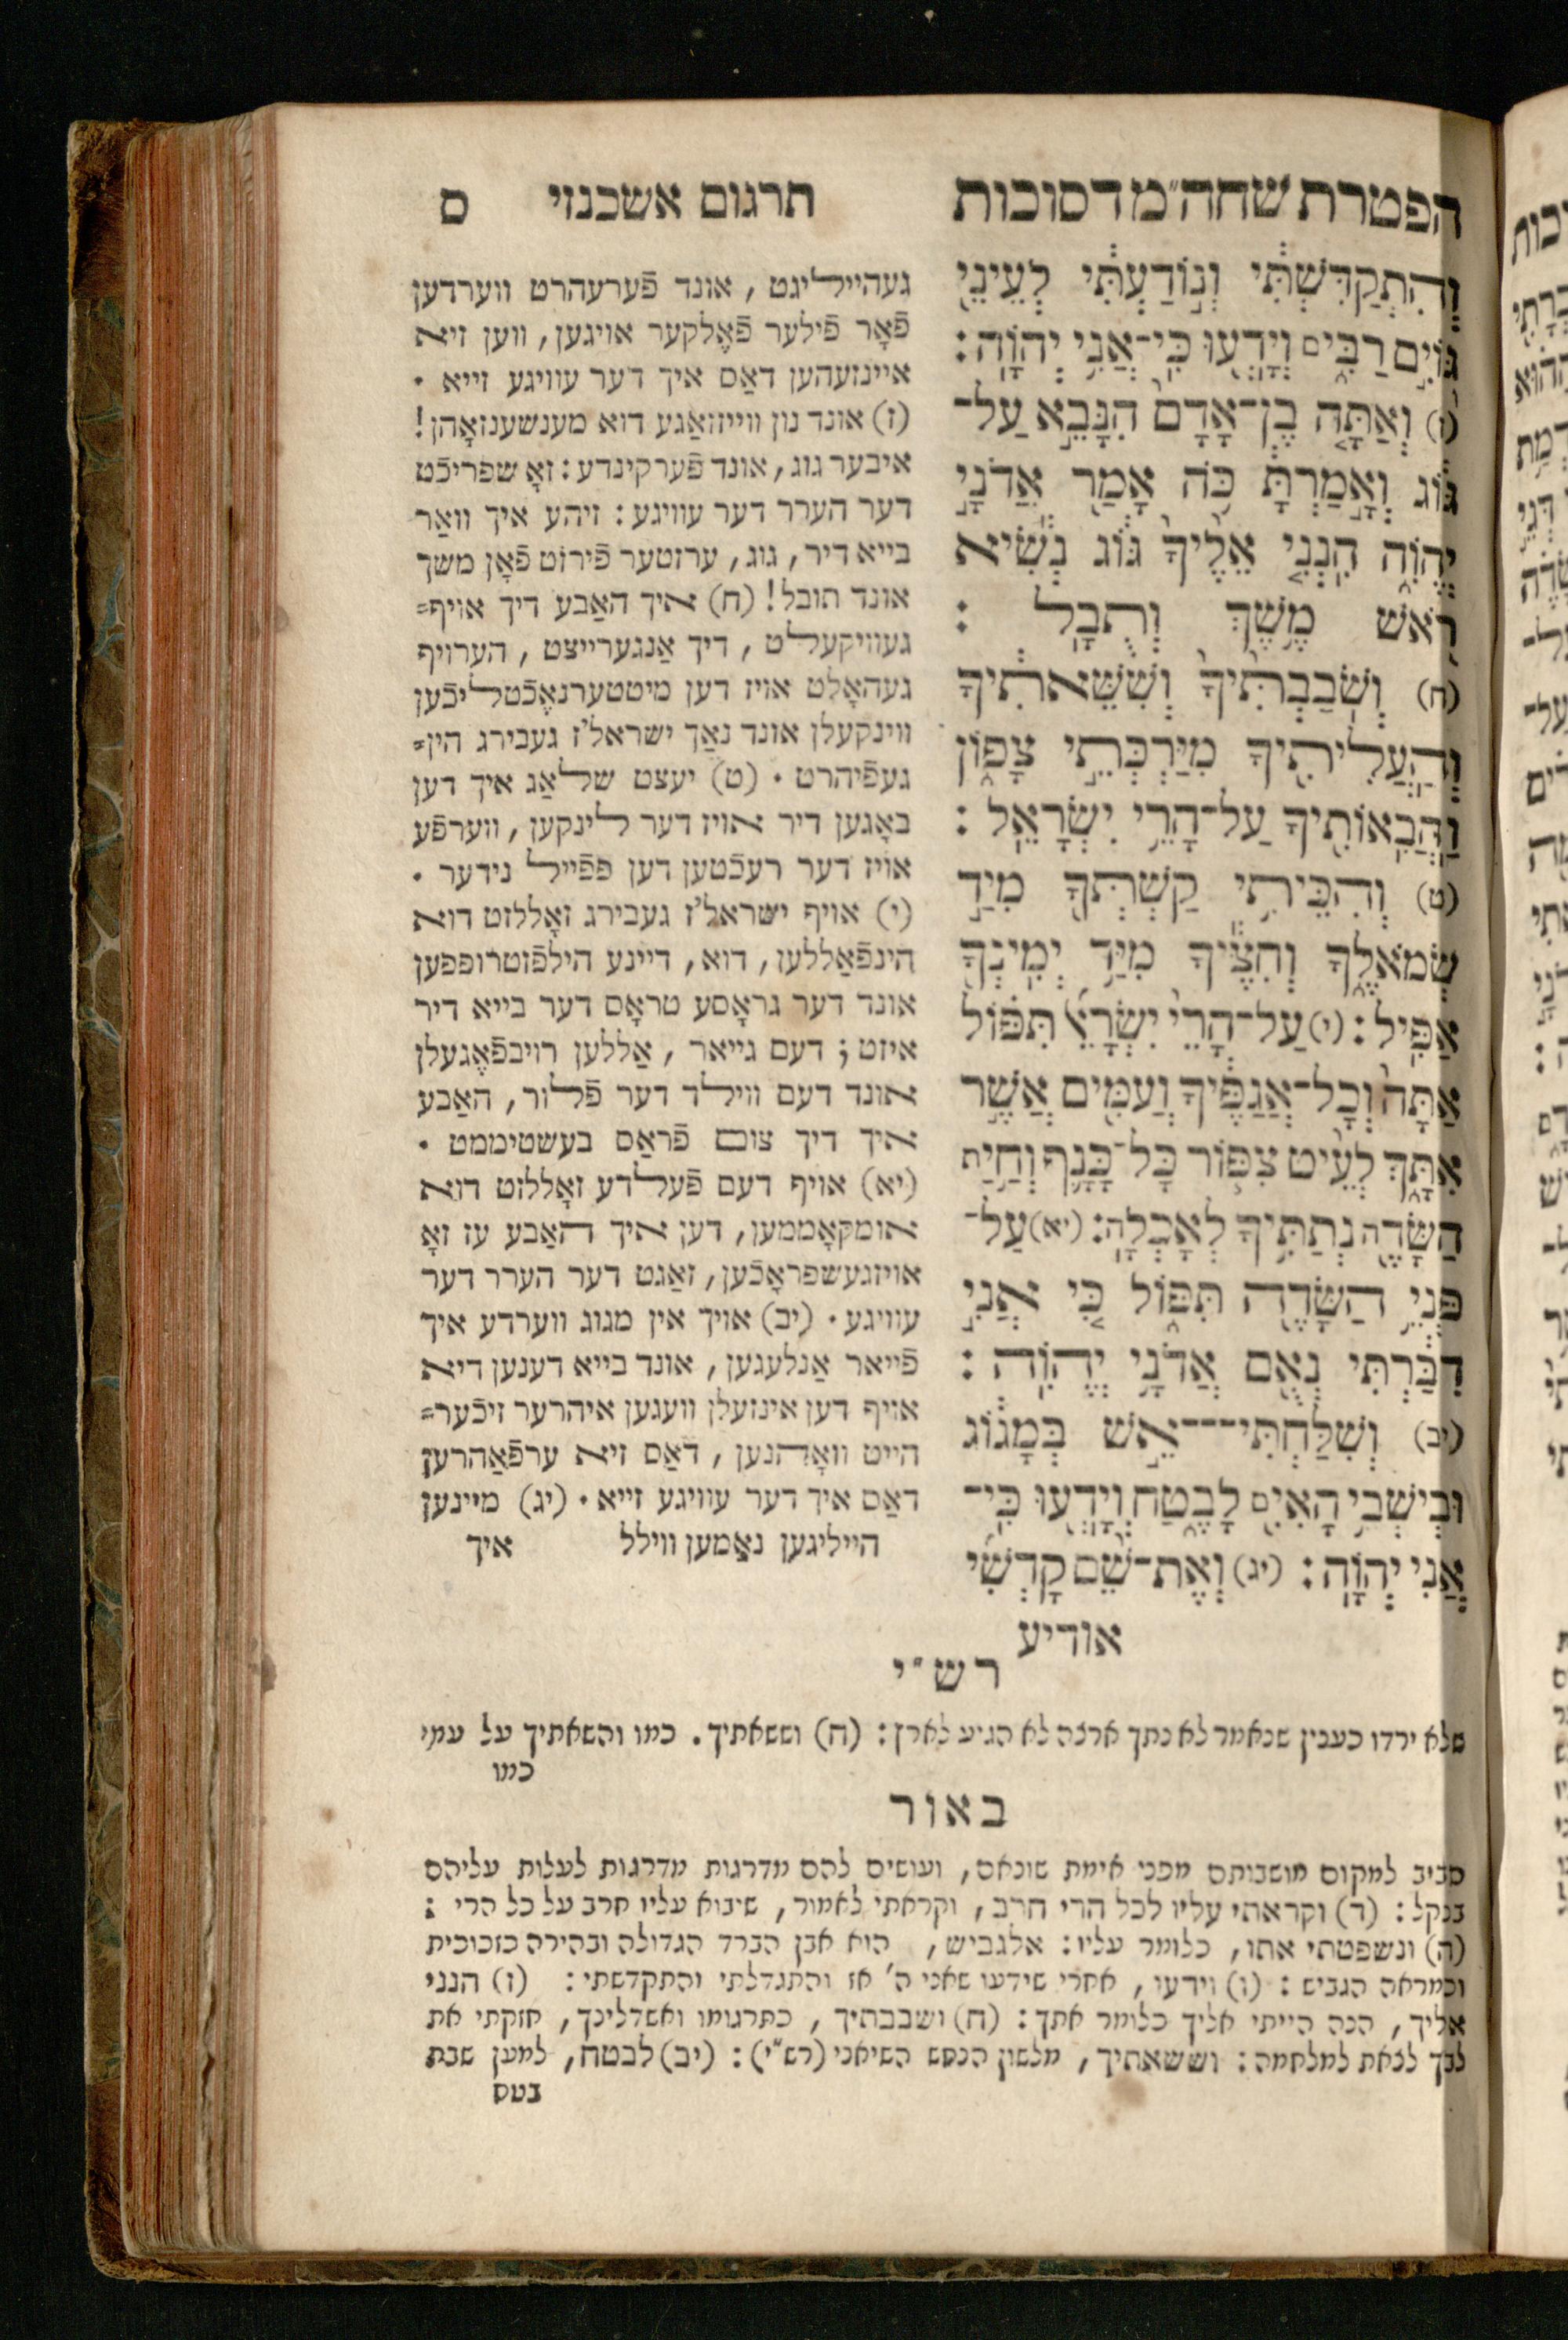 הפטרת שחה״מ דסוכות
וְהִתְקַדִּשְׁתִּי וְנוֹדַעְתִּי לְעֵינֵי
גּוֹיִם רַבִּים וְיָדְעוּ כִּי־אֲנִי יְהוָֹה :
(ז) וְאַתָּה בֶן־אָדָם הִנָּבֵא עַל־
גּוֹג וְאָמַרְתָּ כֹּה אָמַר אֲדֹנָי
יֱהוִֹה הִנְנִי אֵלֶיךָ גּוֹג נְשִׂיא
רֹאשׁ מֶשֶׁךְ וְתֻבָל :
(ח) וְשֹׁבַבְתִּיךָ וְשִׁשֵּׁאתִיךָ
וְהַעֲלִיתִיךָ מִיַּרְכְּתֵי צָפוֹן
וַהֲבִאוֹתִיךָ עַל־הָרֵי יִשְׂרָאֵל :
(ט) וְהִכֵּיתִי קַשְׁתְּךָ מִיַּד
שְׂמֹאלֶךָ וְחִצֶּיךָ מִיַּד יְמִינְךָ
אַפִּיל : (י) עַל־הָרֵי יִשְׂרָאֵל תִּפּוֹל
אַתָּה וְכָל־אֲגַפֶּיךָ וְעַמִּים אֲשֶׁר
אִתָּךְ לְעֵיט צִפּוֹר כָּל־כָּנָף וְחַיַּת
הַשָּׂדֶה נְתַתִּיךָ לְאָכְלָה : (יא) עַל־
פְּנֵי הַשָּׂדֶה תִּפּוֹל כִּי אֲנִי
דִבַּרְתִּי נְאֻם אֲדֹנָי יֱהוִֹה :
(יב) וְשִׁלַּחְתִּי־אֵשׁ בְּמָגוֹג
וּבְיֹשְׁבֵי הָאִיִּם לָבֶטַח וְיָדְעוּ כִּי־
אֲנִי יְהוָֹה : (יג) וְאֶת־שֵׁם קָדְשִׁי
אודיע
תרגום אשכנזי ס
געהייליגט, אונד פֿערעהרט ווערדען
פֿאָר פֿילער פֿאֶלקער אויגען, ווען זיא
איינזעהען דאַס איך דער עוויגע זייא .
(ז) אונד נון ווייזזאַגע דוא מענשענזאָהן!
איבער גוג, אונד פֿערקינדע: זאָ שפריכֿט
דער הערר דער עוויגע: זיהע איך וואַר
בייא דיר, גוג, ערזטער פֿירזט פֿאָן משך
אונד תובל! (ח) איך האַבע דיך אויף=
געוויקעלט, דיך אַנגערייצט, הערויף
געהאָלט אויז דען מיטטערנאֶכֿטליכֿען
ווינקעלן אונד נאַך ישראל'ז געבירג הין=
געפֿיהרט . (ט) יעצט שלאַג איך דען
באָגען דיר אויז דער לינקען, ווערפֿע
אויז דער רעכֿטען דען פפֿייל נידער .
(י) אויף ישראל'ז געבירג זאָללזט דוא
הינפֿאַללען, דוא, דיינע הילפֿזטרופפען
אונד דער גראָסע טראָס דער בייא דיר
איזט; דעם גייאר, אַללען רויבפֿאֶגעלן
אונד דעם ווילד דער פֿלור, האַבע
איך דיך צום פֿראַס בעשטיממט .
(יא) אויף דעם פֿעלדע זאָללזט דוא
אומקאָממען, דען איך האַבע עז זאָ
אויזגעשפראָכֿען, זאַגט דער הערר דער
עוויגע . (יב) אויך אין מגוג ווערדע איך
פֿייאר אַנלעגען, אונד בייא דענען דיא
אויף דען אינזעלן וועגען איהרער זיכֿער=
הייט וואָהנען, דאַס זיא ערפֿאַהרען
דאַס איך דער עוויגע זייא . (יג) מיינען
הייליגען נאַמען ווילל איך
רש״י
שלא ירדו כענין שנאמר לא נתך ארצה לא הגיע לארץ: (ח) וששאתיך. כמו והשאתיך על עמי
כמו
באור
סביב למקום מושבותם מפני אימת שונאם, ועושים להם מדרגות מדרגות לעלות עליהם
בנקל: (ד) וקראתי עליו לכל הרי חרב, וקראתי לאמור, שיבוא עליו חרב על כל הרי :
(ה) ונשפטתי אתו, כלומר עליו: אלגביש, הוא אבן הברד הגדולה ובהירה כזכוכית
וכמראה הגביש : (ו) וידעו, אחרי שידעו שאני ה' אז והתגדלתי והתקדשתי: (ז) הנני
אליך, הנה הייתי אליך כלומר אתך: (ח) ושבבתיך, כתרגומו ואשדלינך, חזקתי את
לבך לצאת למלחמה: וששאתיך, מלשון הנחש השיאני (רש״י): (יב) לבטח, למען שבת
בטח